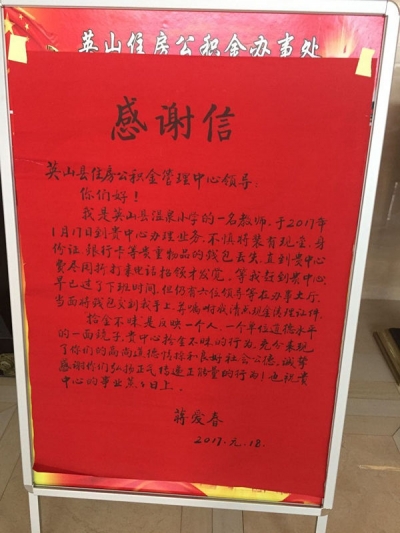 英山住房公积金办事处
感谢信
英山县住房公积金管理中心领导:
你们好!
我是英山县温泉小学的一名教师,于2017年
1月17日到贵中心办理业务,不慎将装有现金、身
份证、银行卡等贵重物品的钱包丢失,直到贵中心
打来电话招领才发觉。等我赶到贵中心,
早已过了下班时间,但仍有六位领导等在办事大厅,
当面将钱包交到我手上,并嘱咐我清点现金清理证件。
"拾金不昧"是反映一个人、一个单位道德水平
的一面镜子,贵中心拾金不昧的行为,充分表现
了你们的高尚道德情操和良好社会公德。诚挚
感谢你们弘扬正气传递正能量的行为!也祝贵
中心的事业蒸蒸日上。
蒋爱春
2017.元.18.